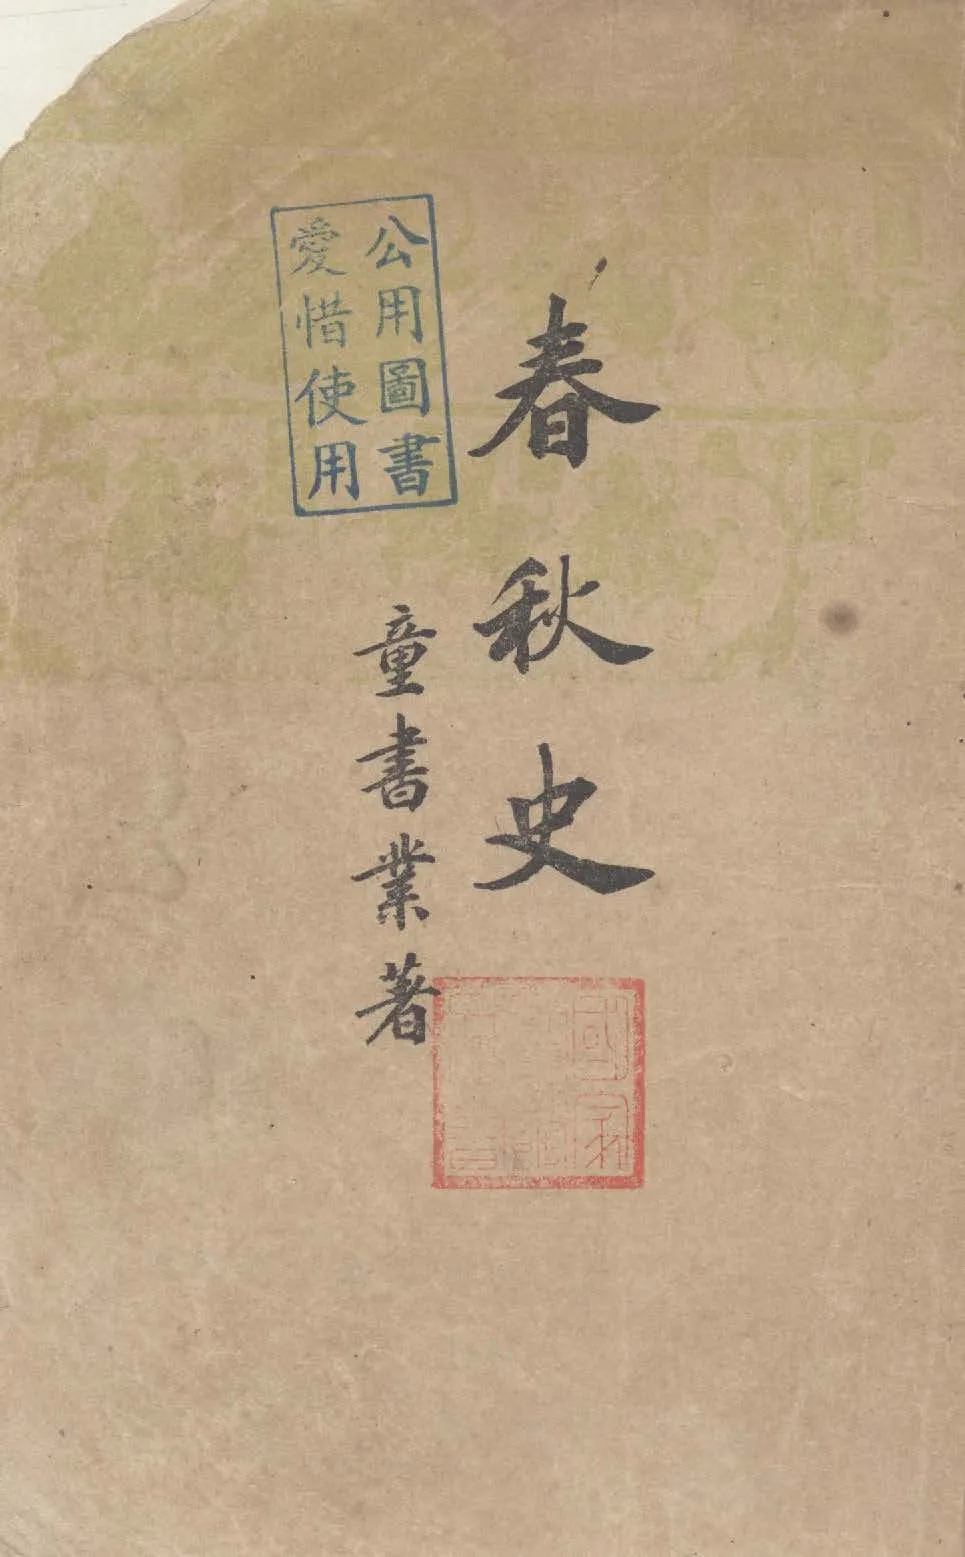 春秋史
童書業著
公用圖書
愛惜使用
國家